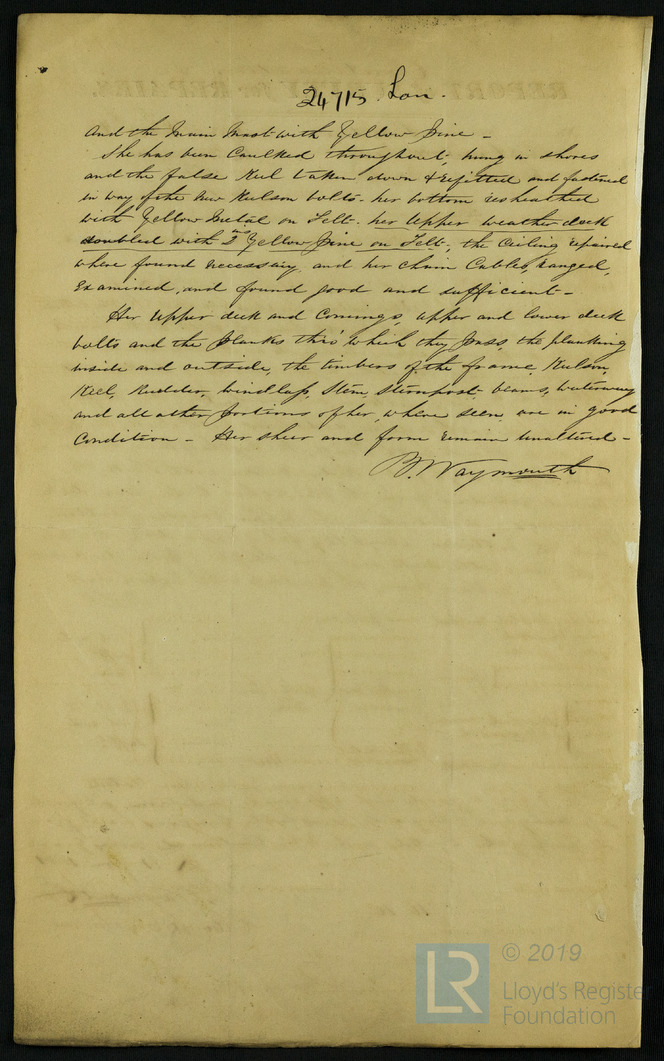 24715 Lon.
and the Main Mast with Yellow Pine –
She has been Caulked throughout, hung in shores
and the false Keel taken down & refitted and fastened
in way of the new Keelson bolts – her bottom resheathed
with Yellow Metal on Felt – her Upper weather deck
doubled with 2 ins Yellow Pine on Felt –, the Ceiling repaired
where found necessary and her Chain Cables, ranged,
Examined, and found good and sufficient –
Her Upper deck and Comings, upper and lower deck
bolts and the planks thro' which they pass, the planking
inside and outside, the timbers of the frame Keelson,
Keel, Rudder, windlass, Stem, Sternpost – beams, waterway
and all other portions of her, where seen, are in good
Condition – Her sheer and form remain Unaltered –
B. Waymouth
LR
© 2019
Lloyd's Register
Foundation